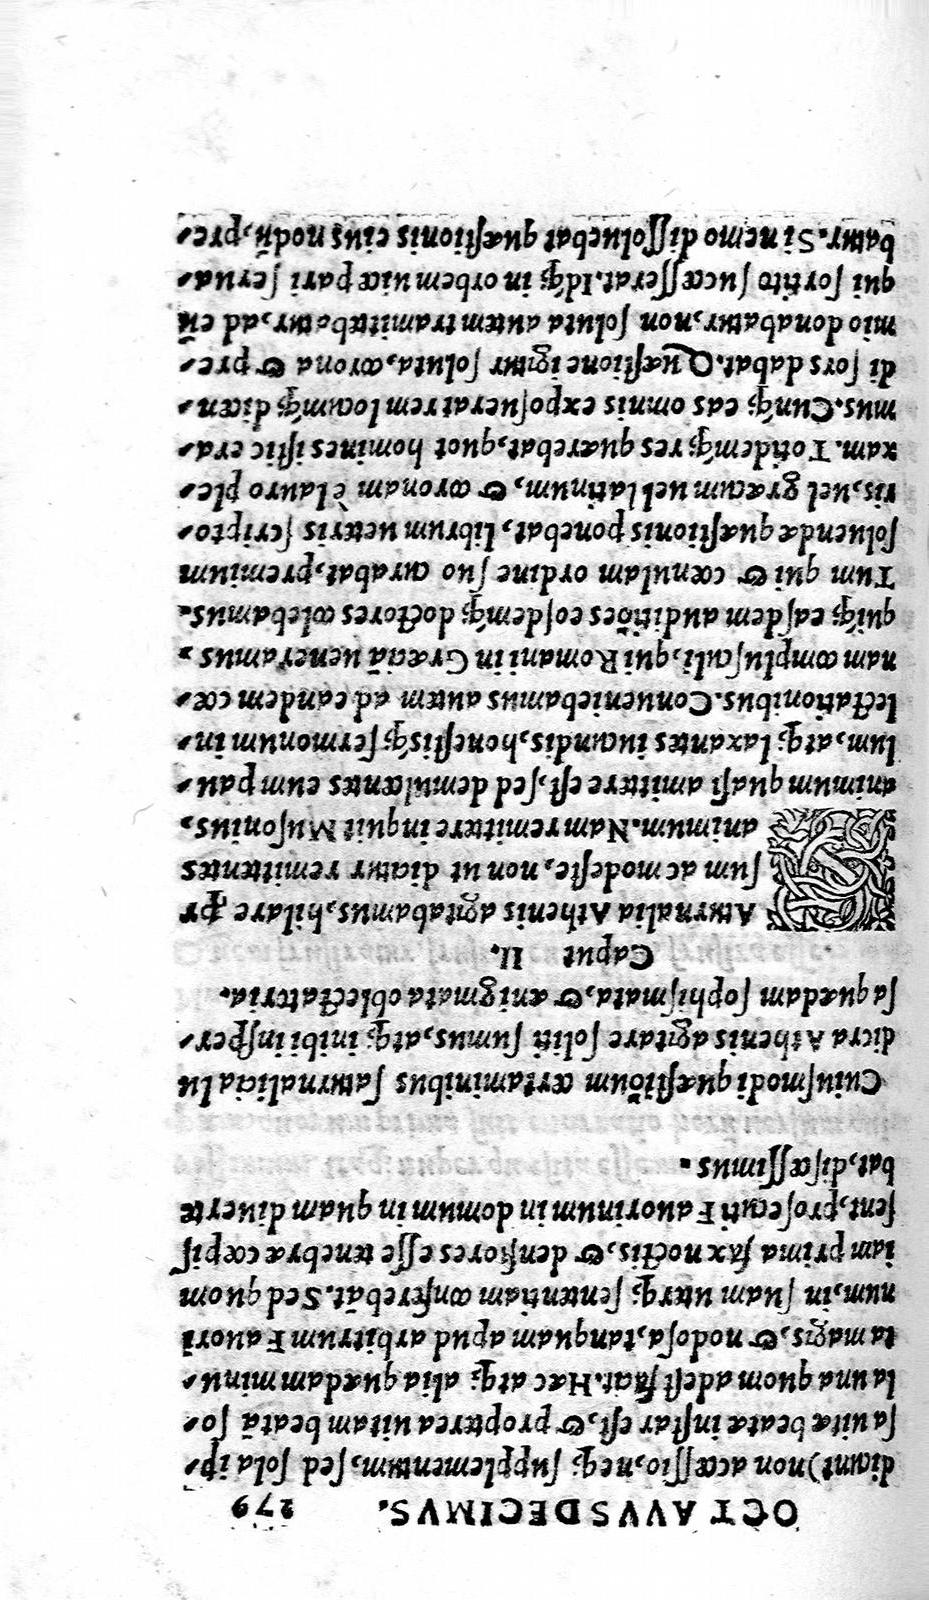 OCTAVVS DECIMVS. 279
dicunt) non accessio, neq; supplementum, sed sola ip-
sa uitæ beatæ instar est, & propterea uitam beatā so-
la una quom adest facit. Hæc atq; alia quædam minu-
ta magis, & nodosa, tanquam apud arbitrum Fauori
num, in suam uterq; sententiam conferebāt. Sed quom
iam prima fax noctis, & densiores esse tenebræ cœpis
sent, prosecuti Fauorinum in domum in quam diuerte
bat, discessimus.
Cuiusmodi quæstiōum certaminibus saturnalicia lu
dicra Athenis agitare soliti sumus, atq; inibi insper-
sa quædam sophismata, & ænigmata oblectatoria.
Caput II.
SAturnalia Athenis agitabamus, hilare pr
sum ac modeste, non ut dicitur remittentes
animum. Nam remittere inquit Musonius,
animum quasi amittere est, sed demulcentes eum pau-
lum, atq; laxantes iucundis, honestisq́; sermonum in-
lectationibus. Conueniebamus autem ad eandem cœ-
nam complusculi, qui Romani in Græciā ueneramus,
quiq́; easdem auditiōes eosdemq́; doctores colebamus.
Tum qui & cœnulam ordine suo curabat, præmium
soluendæ quæstionis ponebat, librum ueteris scripto-
ris, uel græcum uel latinum, & coronam è lauro ple
xam. Totidemq́; res quærebat, quot homines istic era-
mus. Cunq́; eas omnis exposuerat rem locumq́; dicen-
di sors dabat. Quæstione igitur soluta, corona & præ-
mio donabatur, non soluta autem tramittebatur, ad eū
qui sortito successerat. Idq́; in orbem uice pari serua-
batur. Si nemo dissoluebat quæstionis eius nodū, pre-